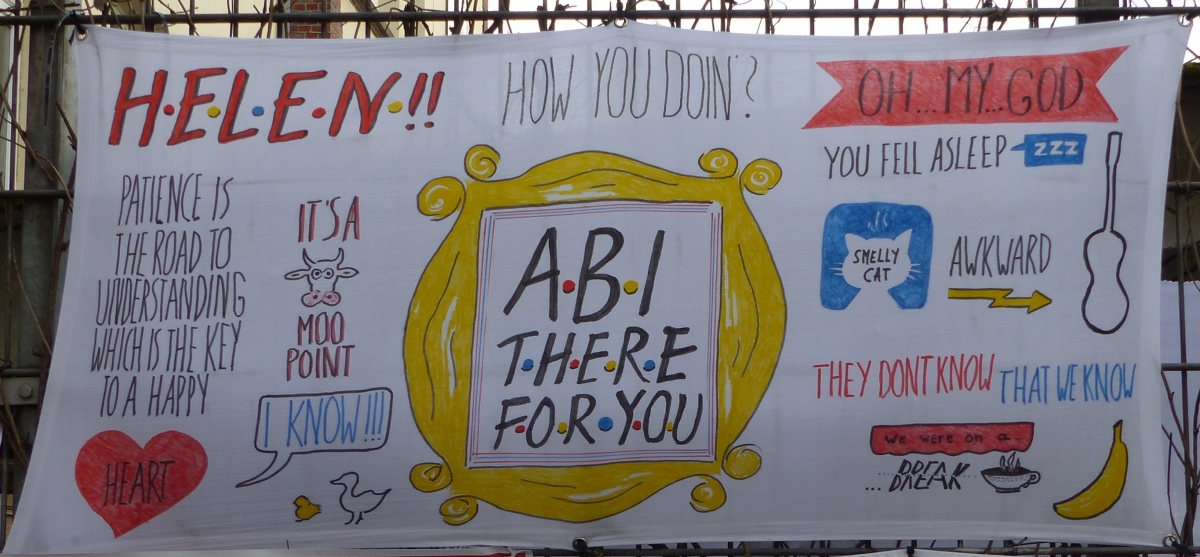 H·E·L·E·N·!!
HOW YOU DOIN'?
OH...MY...GOD
YOU FELL ASLEEP
zzz
PATIENCE IS
THE ROAD TO
UNDERSTANDING
WHICH IS THE KEY
TO A HAPPY
HEART
IT'S A
MOO
POINT
I KNOW!!!
A·B·I
T·H·E·R·E
F·O·R·Y·O·U
SMELLY
CAT
AWKWARD
THEY DONT KNOW THAT WE KNOW
we were on a
...BREAK